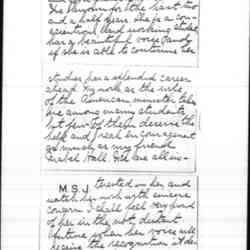 and a half years. She is a con-
scientious hard working student
has a beautiful voice
if she is able to continue her
studies has a splendid career
ahead. My work as the wife
of the American minister takes
me among many students
but few of them deserve the
help and real encouragement
as much as my friend
Hall. We are all in-
M.S.J
terested in her and
watch her work with sincere
concern. I shall feel very proud
of her in the not distant
future when her voice will
receive the recognition it de-